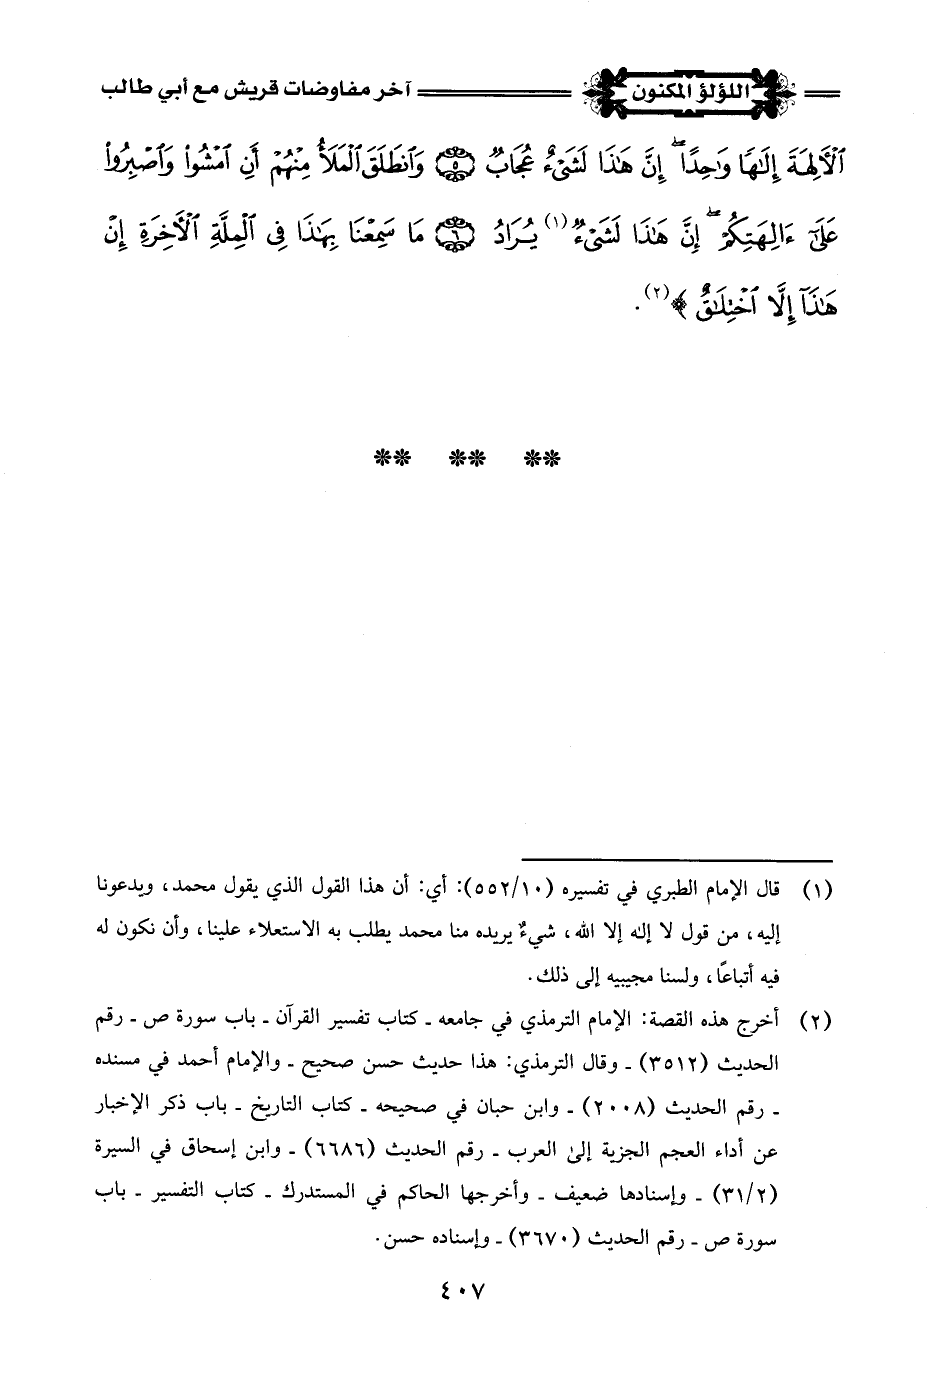 اللؤلؤ المكنون آخر مفاوضات قريش مع أبي طالب
ٱلْأَلِهَةَ إِلَٰهًا وَٰحِدًا ۖ إِنَّ هَٰذَا لَشَىْءٌ عُجَابٌ ۝٥ وَٱنطَلَقَ ٱلْمَلَأُ مِنْهُمْ أَنِ ٱمْشُوا۟ وَٱصْبِرُوا۟
عَلَىٰٓ ءَالِهَتِكُمْ ۖ إِنَّ هَٰذَا لَشَىْءٌ (١) يُرَادُ ۝٦ مَا سَمِعْنَا بِهَٰذَا فِى ٱلْمِلَّةِ ٱلْأَخِرَةِ إِنْ
هَٰذَآ إِلَّا ٱخْتِلَٰقٌ ﴾(٢).
** ** **
(١) قال الإمام الطبري في تفسيره (١٠/٥٥٢): أي: أن هذا القول الذي يقول محمد، ويدعونا
إليه، من قول لا إله إلا الله، شيءٌ يريده منا محمد يطلب به الاستعلاء علينا، وأن نكون له
فيه أتباعًا، ولسنا مجيبيه إلى ذلك.
(٢) أخرج هذه القصة: الإمام الترمذي في جامعه ـ كتاب تفسير القرآن ـ باب سورة ص ـ رقم
الحديث (٣٥١٢) ـ وقال الترمذي: هذا حديث حسن صحيح ـ والإمام أحمد في مسنده
ـ رقم الحديث (٢٠٠٨) ـ وابن حبان في صحيحه ـ كتاب التاريخ ـ باب ذكر الإخبار
عن أداء العجم الجزية إلى العرب ـ رقم الحديث (٦٦٨٦) ـ وابن إسحاق في السيرة
(٣١/٢) ـ وإسنادها ضعيف ـ وأخرجها الحاكم في المستدرك ـ كتاب التفسير ـ باب
سورة ص ـ رقم الحديث (٣٦٧٠) ـ وإسناده حسن.
٤٠٧